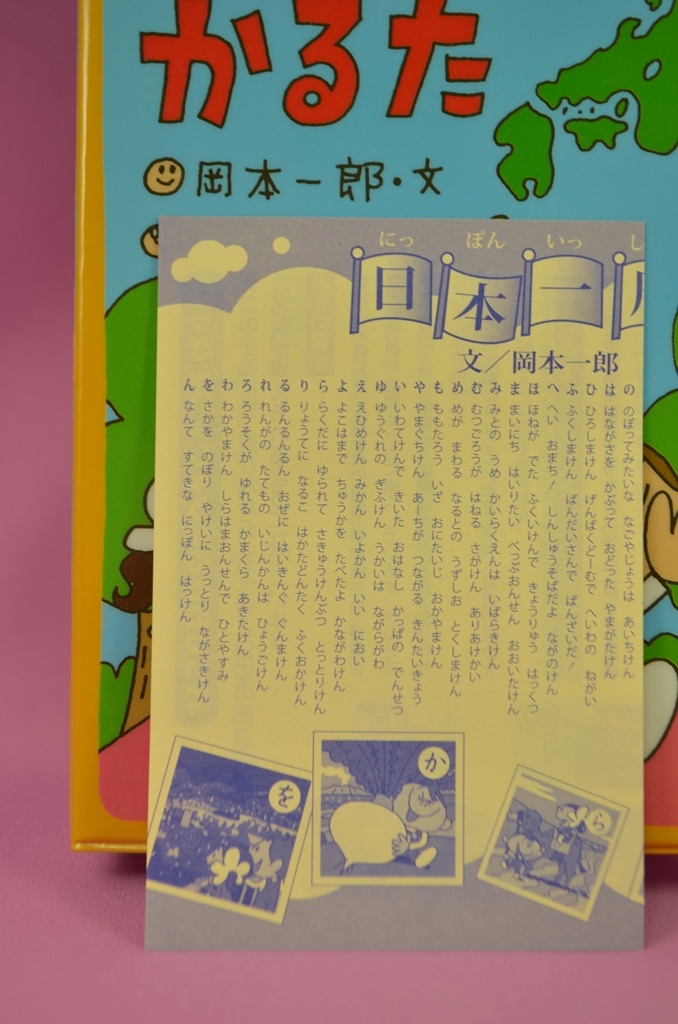 かるた
岡本一郎・文
にっ ぽん いっ し
日本一
文／岡本一郎
の のぼってみたいな なごやじょうは あいちけん
は はながさを かぶって おどった やまがたけん
ひ ひろしまけん げんばくどーむで へいわの ねがい
ふ ふくしまけん ばんだいさんで ばんざいだ！
へ へい おまち！ しんしゅうそばだよ ながのけん
ほ ほねが でた ふくいけんで きょうりゅう はっくつ
ま まいにち はいりたい べっぷおんせん おおいたけん
み みとの うめ かいらくえんは いばらきけん
む むつごろうが はねる さがけん ありあけかい
め めが まわる なるとの うずしお とくしまけん
も ももたろう いざ おにたいじ おかやまけん
や やまぐちけん あーちが つながる きんたいきょう
い いわてけんで きいた おはなし かっぱの でんせつ
ゆ ゆうぐれの ぎふけん うかいは ながらがわ
え えひめけん みかん いよかん いい におい
よ よこはまで ちゅうかを たべたよ かながわけん
ら らくだに ゆられて さきゅうけんぶつ とっとりけん
り りょうてに なるこ はかたどんたく ふくおかけん
る るんるんるん おぜに はいきんぐ ぐんまけん
れ れんがの たてもの いじんかんは ひょうごけん
ろ ろうそくが ゆれる かまくら あきたけん
わ わかやまけん しらはまおんせんで ひとやすみ
を さかを のぼり やけいに うっとり ながさきけん
ん なんて すてきな にっぽん はっけん
を
か
ら